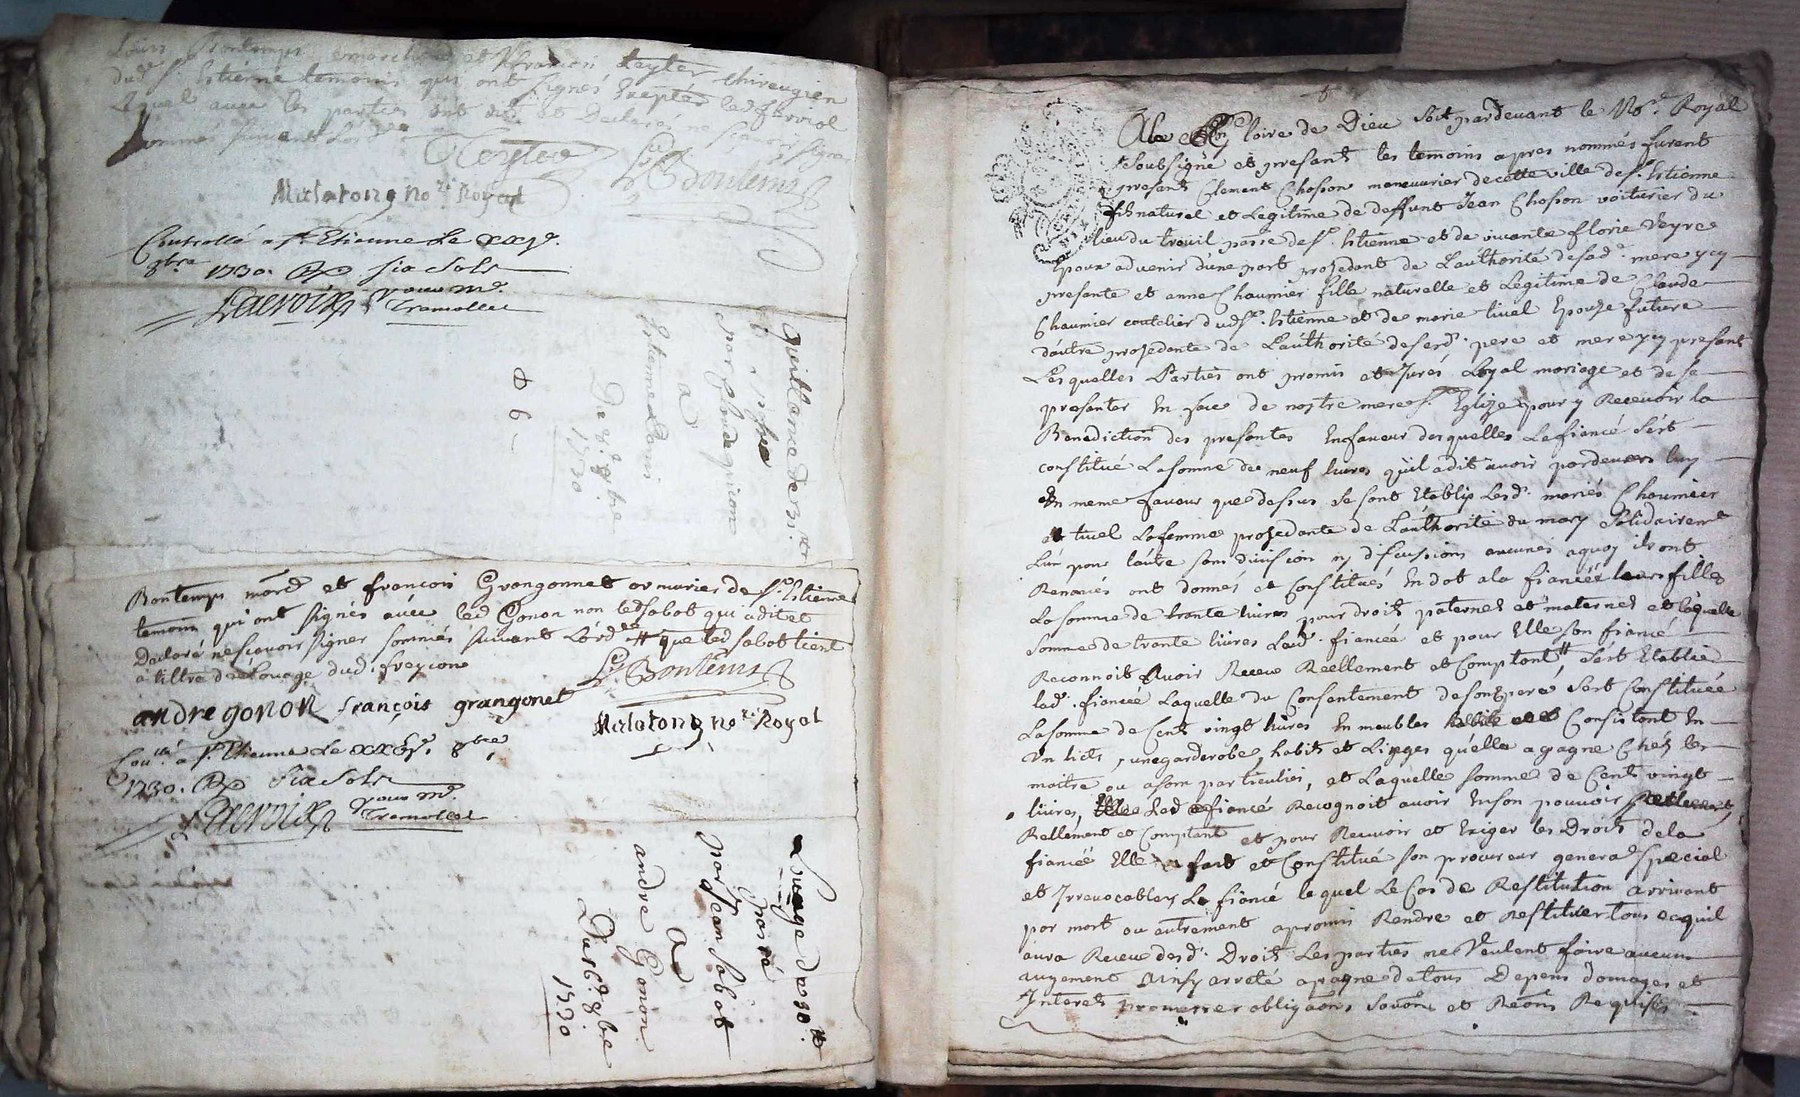 Bontemps et françois teyter chireugien
dud. St. Estienne temoins qui ont signés Exepté led
Lequel avec les parties ont dit et Declaré ne
sommés suivant L'ord.ce
Teyter
Bontems
Mulatong no.re Royal
Controllé a St. Etienne Le xxx
8bre 1730. R six sols
Lacroix pour mr.
Tramollet
quittance de 131. tt
a
Du 8bre
1730
Bontemps mard. et françois Grangonnet armurier de St. Estienne
temoin qui ont signés avec led Gonon non led Sabot qui a dit et
Declaré ne scavoir signer sommés suivant L'ord.ce # que led Sabot tient
a tiltre de Louage dud. freycon
Bontems
andre gonon françois grangonet
Mulatong no.re Royal
Con.llé a St. Etienne Le xxx 8bre
1730. R six sols
Lacroix pour mr.
Tramollet
Louage de 30. tt
passé
par Jean Sabot
a
andre Gonon.
Du 16e. 8bre
1730
A la Gloire de Dieu soit pardevant le No.re Royal
soubsigné et presant les temoins apres nommés furent
presant Clement Chopon maneuvrier de cette ville de St. Estienne
fils naturel et Legitime de deffunt Jean Chopon voiturier du
lieu du treuil passe de St. Estienne et de vivante florie Veyre
pour advenir d'une part prosedant de L'authorité de sad. mere ycy
presante et anne Chaumier fille naturelle et Legitime de Claude
Chaumier coutelier dud St. Estienne et de marie tivel Epouze future
d'autre prosedante de L'authorité de sesd. pere et mere ycy presant
Lesquelles Parties ont promis et Jurés Loyal mariage et de se
presanter En face de nostre mere Ste. Eglize pour y Recevoir la
Benediction des presantes En faveur desquelles Le fiancé s'est
constitué La somme de neuf livres qu'il a dit avoir pardevers luy
En meme faveur que dessus se sont Etablis Lesd. mariés Chaumier
et tivel La femme prosedante de L'authorité du mary solidairem.t
L'un pour l'autre sans division ny discussions aucunes a quoy ils ont
Renoncés ont donnés et Constitués En dot a la fiancée leurs filles
La somme de trante livres pour droits paternel et maternel et laquelle
somme de trante livres Lad. fiancée et pour Elle son fiancé
Reconnoit avoir Receu Reellement et Comptant sest Etablie
lad. fiancée Laquelle du Consantement de son pere s'est Constituée
La somme de Cent vingt livres En meubles Consistant En
un lict, une garderobe, habits et Linges qu'elle a gagne Chés les
maitre ou a son particulier, et Laquelle somme de Cent vingt
livres, Led fiancé Recognoit avoir En son pouvoir
Rellement et Comptant et pour Recevoir et Exiger les Droits de la
fiancée Elle a fait et Constitué son procureur general special
et Irrevocable Le fiancé lequel Le Cas de Restitution arrivant
par mort ou autrement a promis Rendre et Restituer tous ce quil
aura Receu desd. Droits Les parties ne Veulent faire aucuns
augement Ainsy arreté a pagne de tous Depens Domages et
Interets promesses obligaons soubmons et Reons Requises